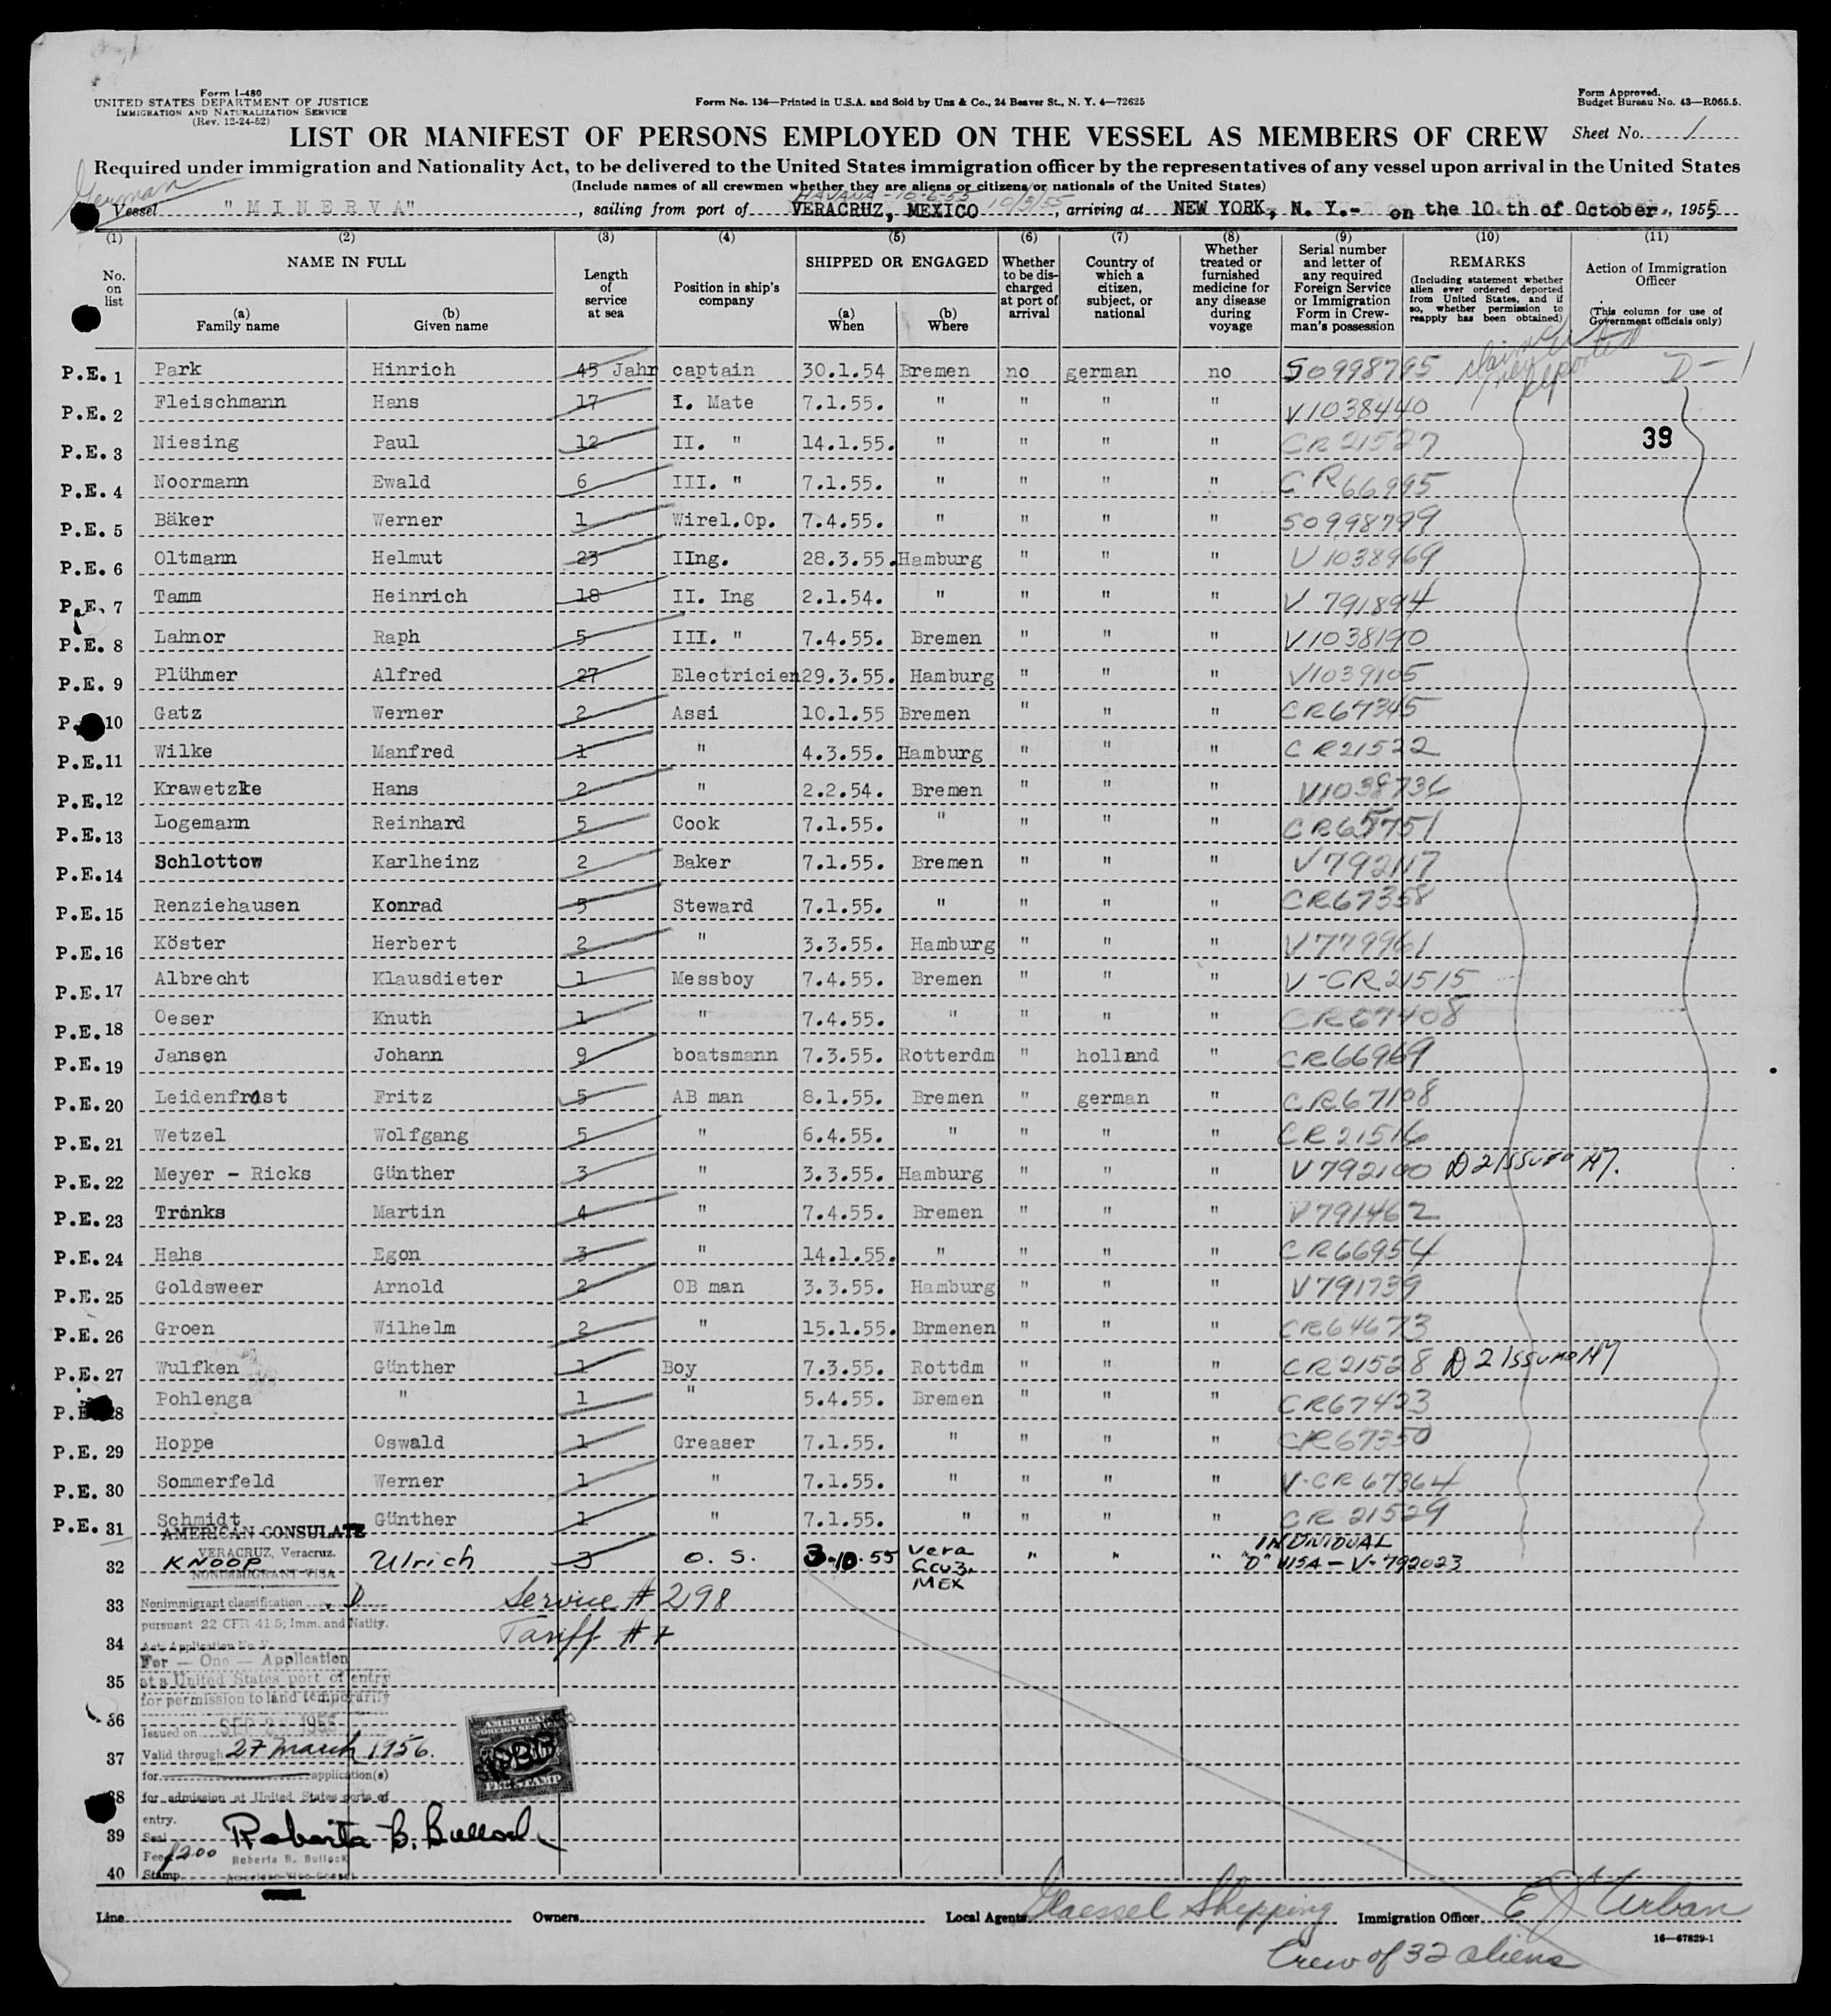 Form I-480
UNITED STATES DEPARTMENT OF JUSTICE
IMMIGRATION AND NATURALIZATION SERVICE
(Rev. 12-24-52)
Form No. 136—Printed in U.S.A. and Sold by Unz & Co., 24 Beaver St., N. Y. 4—72625
Form Approved.
Budget Bureau No. 43—R065.5.
LIST OR MANIFEST OF PERSONS EMPLOYED ON THE VESSEL AS MEMBERS OF CREW Sheet No. 1
Required under immigration and Nationality Act, to be delivered to the United States immigration officer by the representatives of any vessel upon arrival in the United States
(Include names of all crewmen whether they are aliens or citizens or nationals of the United States)
German
HAVANA - 10-6-55
Vessel "MINERVA", sailing from port of VERACRUZ, MEXICO 10/3/55, arriving at NEW YORK, N. Y.- on the 10.th of October., 1955
(1) (2) (3) (4) (5) (6) (7) (8) (9) (10) (11)
No. on list
NAME IN FULL
(a) Family name
(b) Given name
Length of service at sea
Position in ship's company
SHIPPED OR ENGAGED
(a) When
(b) Where
Whether to be discharged at port of arrival
Country of which a citizen, subject, or national
Whether treated or furnished medicine for any disease during voyage
Serial number and letter of any required Foreign Service or Immigration Form in Crewman's possession
REMARKS
(Including statement whether alien ever ordered deported from United States, and if so, whether permission to reapply has been obtained)
Action of Immigration Officer
(This column for use of Government officials only)
P.E. 1 Park Hinrich 45 Jahr captain 30.1.54 Bremen no german no S0998795 D-1
P.E. 2 Fleischmann Hans 17 I. Mate 7.1.55. " " " " V1038440
P.E. 3 Niesing Paul 12 II. " 14.1.55. " " " " CR 21527 39
P.E. 4 Noormann Ewald 6 III. " 7.1.55. " " " " CR66995
P.E. 5 Bäker Werner 1 Wirel.Op. 7.4.55. " " " " S0998799
P.E. 6 Oltmann Helmut 23 IIng. 28.3.55. Hamburg " " " V1038969
P.E. 7 Tamm Heinrich 18 II. Ing 2.1.54. " " " " V 791894
P.E. 8 Lahnor Raph 5 III. " 7.4.55. Bremen " " " V1038190
P.E. 9 Plühmer Alfred 27 Electricien 29.3.55. Hamburg " " " V1039105
P. 10 Gatz Werner 2 Assi 10.1.55 Bremen " " " CR67345
P.E. 11 Wilke Manfred 1 " 4.3.55. Hamburg " " " CR21522
P.E. 12 Krawetzke Hans 2 " 2.2.54. Bremen " " " V1038736
P.E. 13 Logemann Reinhard 5 Cook 7.1.55. " " " " CR65751
P.E. 14 Schlottow Karlheinz 2 Baker 7.1.55. Bremen " " " V792117
P.E. 15 Renziehausen Konrad 5 Steward 7.1.55. " " " " CR67358
P.E. 16 Köster Herbert 2 " 3.3.55. Hamburg " " " V779961
P.E. 17 Albrecht Klausdieter 1 Messboy 7.4.55. Bremen " " V-CR21515
P.E. 18 Oeser Knuth 1 " 7.4.55. " " " " CR67408
P.E. 19 Jansen Johann 9 boatsmann 7.3.55. Rotterdm " holland " CR66969
P.E. 20 Leidenfrost Fritz 5 AB man 8.1.55. Bremen " german " CR67108
P.E. 21 Wetzel Wolfgang 5 " 6.4.55. " " " " CR 21516
P.E. 22 Meyer - Ricks Günther 3 " 3.3.55. Hamburg " " " V792100 D 2 ISSUED
P.E. 23 Tronks Martin 4 " 7.4.55. Bremen " " " V791462
P.E. 24 Hahs Egon 3 " 14.1.55. " " " " CR66954
P.E. 25 Goldsweer Arnold 2 OB man 3.3.55. Hamburg " " " V791739
P.E. 26 Groen Wilhelm 2 " 15.1.55. Brmenen " " " CR64673
P.E. 27 Wulfken Günther 1 Boy 7.3.55. Rottdm " " " CR21528 D 2 ISSUED
P.E 28 Pohlenga " 1 " 5.4.55. Bremen " " " CR67423
P.E. 29 Hoppe Oswald 1 Greaser 7.1.55. " " " " CR67350
P.E. 30 Sommerfeld Werner 1 " 7.1.55. " " " " V-CR 67364
P.E. 31 Schmidt Günther 1 " 7.1.55. " " " " CR 21529
AMERICAN CONSULATE
VERACRUZ, Veracruz.
32 KNOOP Ulrich 3 O. S. 3-10-55 Vera Cruz. MEX " " " INDIVIDUAL "D" VISA - V-792023
NONIMMIGRANT VISA
33 Nonimmigrant classification D Service # 298
pursuant 22 CFR 41.5; Imm. and Natlty.
34 Act, Application No. V Tariff #
For — One — Application
35 at a United States port of entry
for permission to land temporarily
36 Issued on SEP
37 Valid through 27 March 1956.
for application(s)
38 for admission at United States ports of
entry.
AMERICAN
FOREIGN SERVICE
FEE STAMP
39 Seal Roberta B. Bullock
Fee $200 Roberta B. Bullock
40 Stamp American Vice Consul
Line Owners Local Agents Shipping Immigration Officer E J Urban
16—67829-1
Crew of 32 aliens